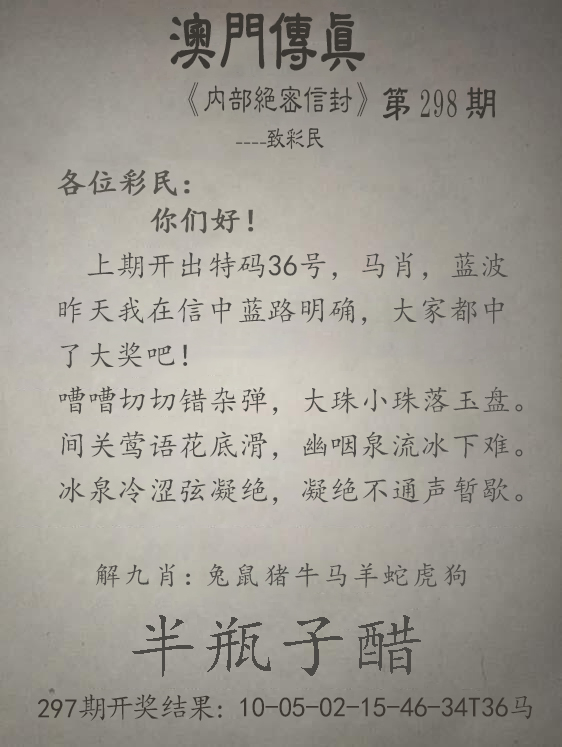 澳門傳眞
《内部絕密信封》第298期
----致彩民
各位彩民：
你们好！
上期开出特码36号，马肖，蓝波
昨天我在信中蓝路明确，大家都中
了大奖吧！
嘈嘈切切错杂弹，大珠小珠落玉盘。
间关莺语花底滑，幽咽泉流冰下难。
冰泉冷涩弦凝绝，凝绝不通声暂歇。
解九肖：兔鼠猪牛马羊蛇虎狗
半瓶子醋
297期开奖结果：10-05-02-15-46-34T36马